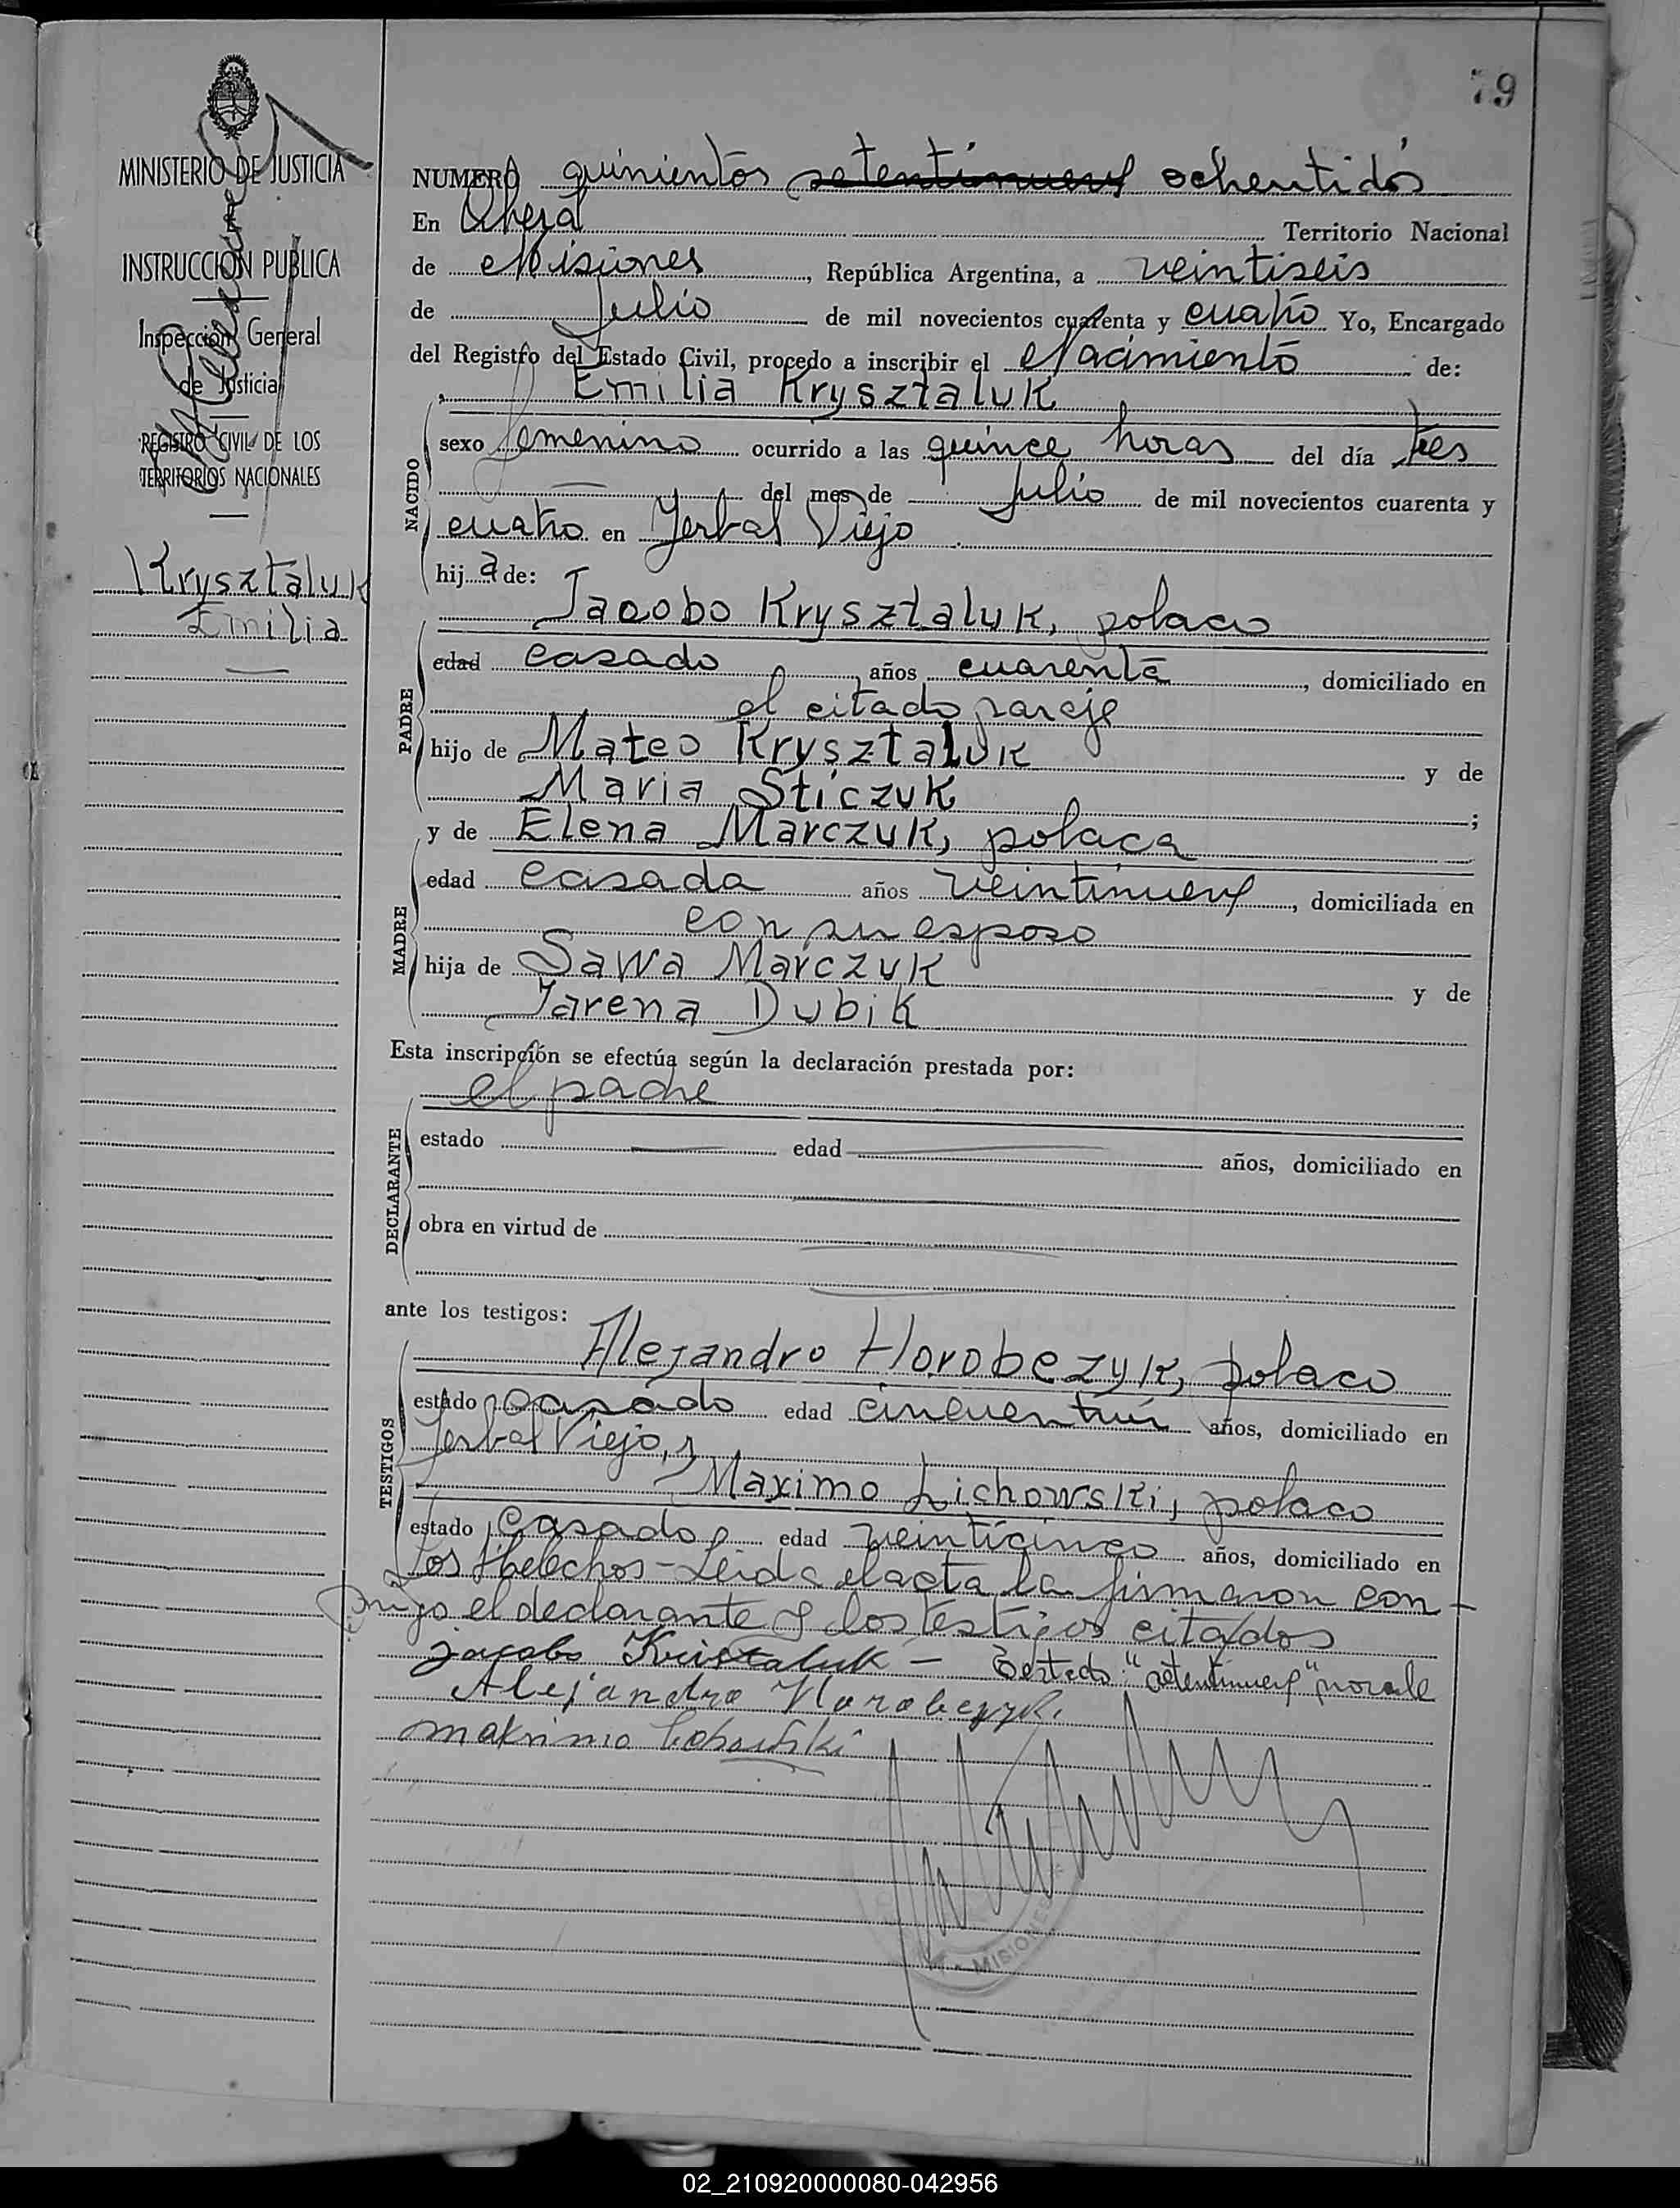 79
MINISTERIO DE JUSTICIA
E
INSTRUCCION PUBLICA
Inspección General
de Justicia
REGISTRO CIVIL DE LOS
TERRITORIOS NACIONALES
Krysztaluk
Emilia
NUMERO quinientos setentinueve ochentidós
En Oberá Territorio Nacional
de Misiones, República Argentina, a veintiseis
de Julio de mil novecientos cuarenta y cuatro Yo, Encargado
del Registro del Estado Civil, procedo a inscribir el Nacimiento de:
Emilia Krysztaluk
NACIDO
sexo femenino ocurrido a las quince horas del día tres
del mes de Julio de mil novecientos cuarenta y
cuatro en Yerbal Viejo
hij a de:
Jacobo Krysztaluk, polaco
PADRE
edad casado años cuarenta, domiciliado en
el citado paraje
hijo de Mateo Krysztaluk y de
Maria Sticzuk;
y de Elena Marczuk, polaca
MADRE
edad casada años veintinueve, domiciliada en
con su esposo
hija de Sawa Marczuk y de
Jarena Dubik
Esta inscripción se efectúa según la declaración prestada por:
el padre
DECLARANTE
estado edad años, domiciliado en
obra en virtud de
ante los testigos:
Alejandro Horobezyk, polaco
TESTIGOS
estado casado edad cincuentiun años, domiciliado en
Yerbal Viejo, y
Maximo Lichowski, polaco
estado casado edad veinticinco años, domiciliado en
Los Helechos - Leida el acta la firmaron con-
migo el declarante y los testigos citados
jacobo Kristaluk - Testado: "setentinueve" no vale
Alejandro Horobezyk
makrimio
MISIONES
02_210920000080-042956